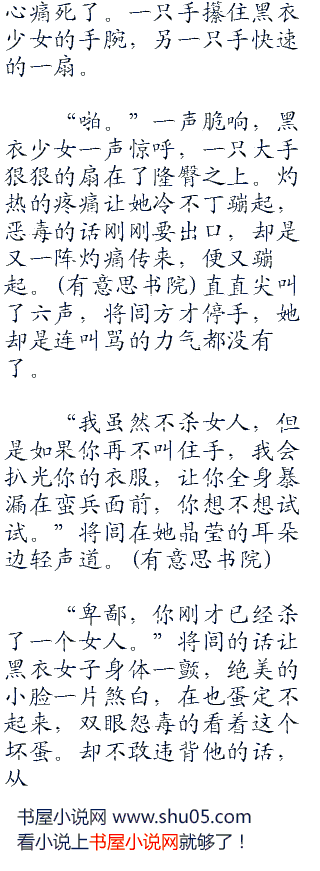 心痛死了。一只手攥住黑衣
少女的手腕，另一只手快速
的一扇。
“啪。”一声脆响，黑
衣少女一声惊呼，一只大手
狠狠的扇在了隆臀之上。灼
热的疼痛让她冷不丁蹦起，
恶毒的话刚刚要出口，却是
又一阵灼痛传来，便又蹦
起。(有意思书院)直直尖叫
了六声，将闾方才停手，她
却是连叫骂的力气都没有
了。
“我虽然不杀女人，但
是如果你再不叫住手，我会
扒光你的衣服，让你全身暴
漏在蛮兵面前，你想不想试
试。”将闾在她晶莹的耳朵
边轻声道。(有意思书院)
“卑鄙，你刚才已经杀
了一个女人。”将闾的话让
黑衣女子身体一颤，绝美的
小脸一片煞白，在也蛋定不
起来，双眼怨毒的看着这个
坏蛋。却不敢违背他的话，
从
书屋小说网 www.shu05.com
看小说上书屋小说网就够了！